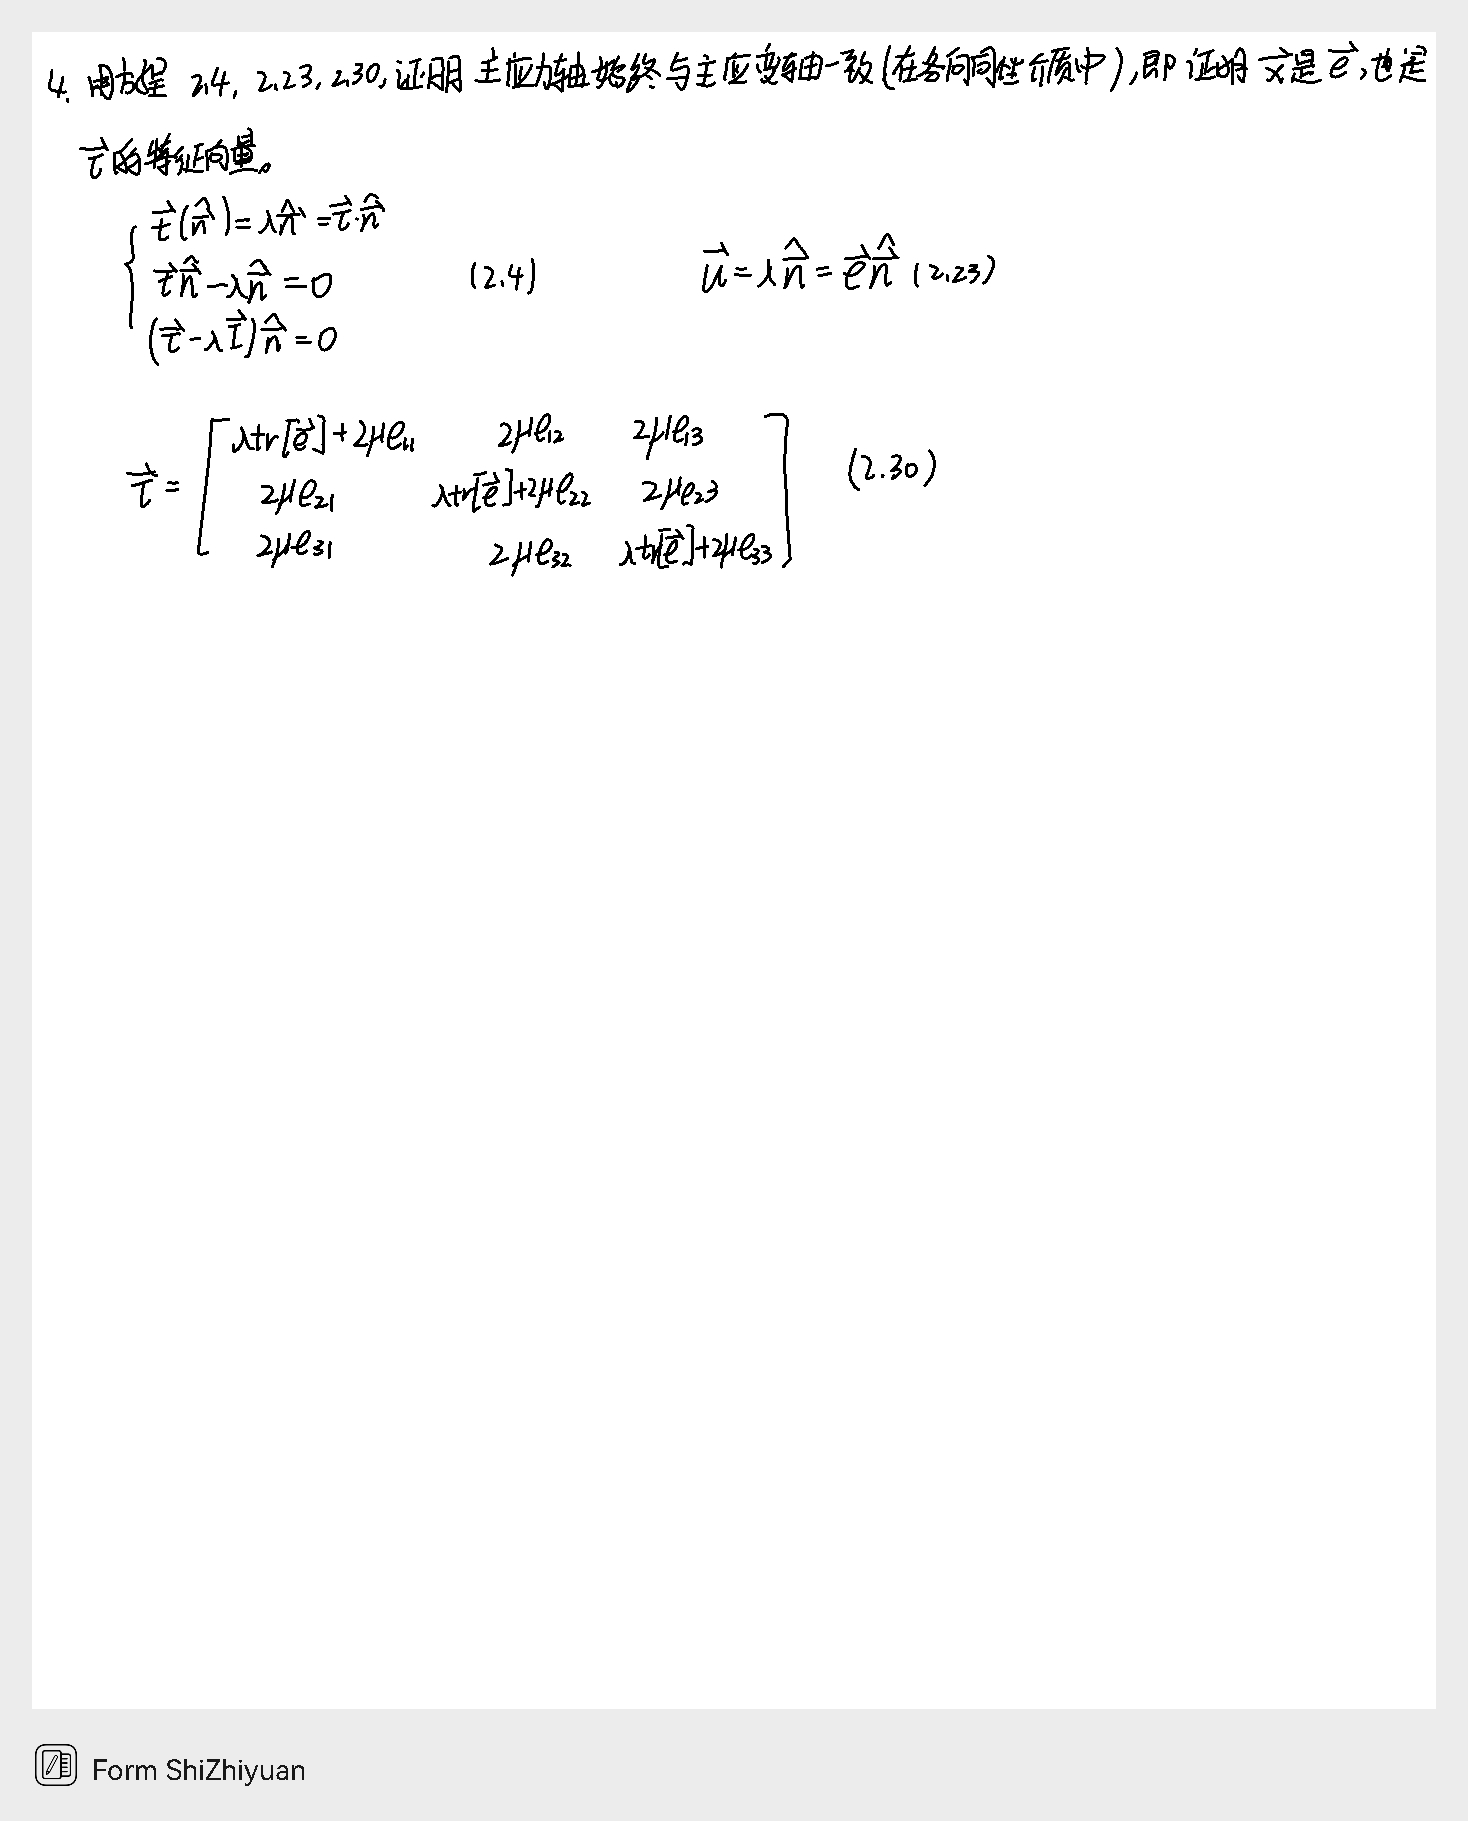 4. 用方程 2.4, 2.23, 2.30, 证明 主应力轴始终与主应变轴一致(在各向同性介质中), 即 证明 x⃗是 e⃗, 也是
τ⃗的特征向量。
t⃗(n̂) = λn̂ = τ⃗·n̂
τ⃗n̂ - λn̂ = 0 (2.4) u⃗ = λn̂ = e⃗n̂ (2.23)
(τ⃗ - λI⃗)n̂ = 0
λtr[e⃗]+2μe₁₁ 2μe₁₂ 2μe₁₃
τ⃗ = 2μe₂₁ λtr[e⃗]+2μe₂₂ 2μe₂₃ (2.30)
2μe₃₁ 2μe₃₂ λtr[e⃗]+2μe₃₃
Form ShiZhiyuan